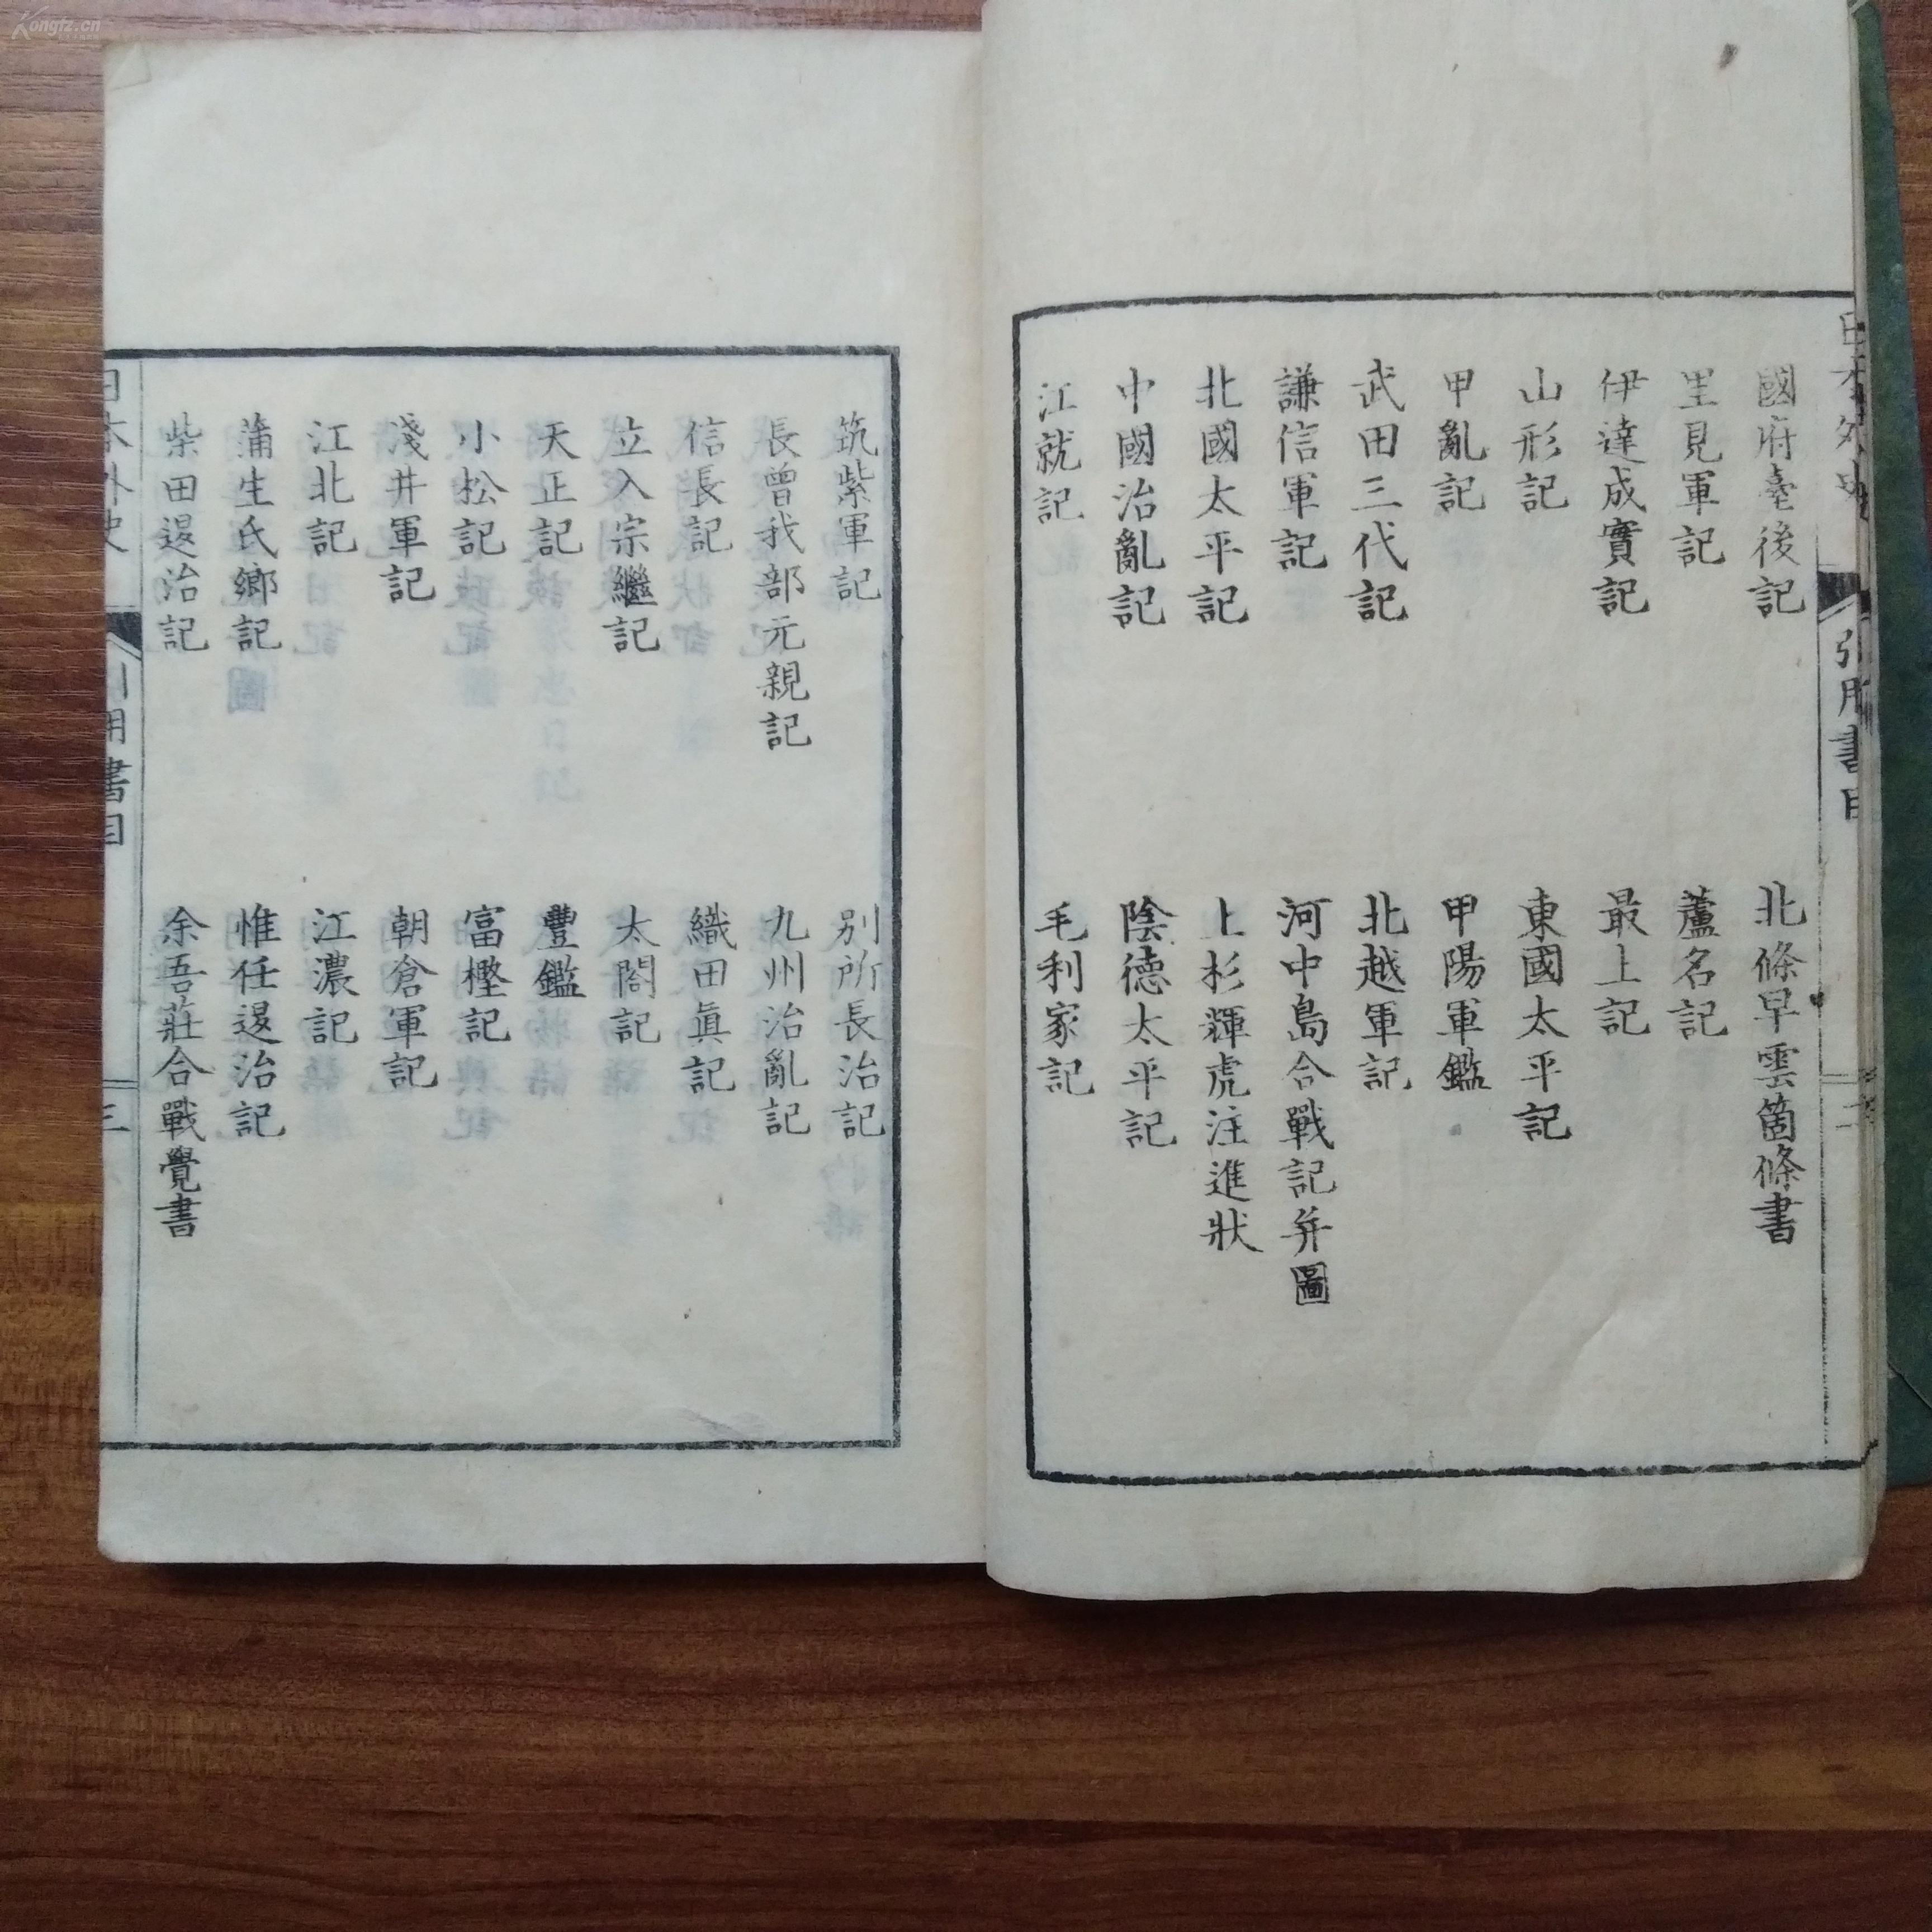 Kongfz.cn
日本外史 引用書目 二
國府臺後記 北條早雲箇條書
里見軍記 蘆名記
伊達成實記 最上記
山形記 東國太平記
甲亂記 甲陽軍鑑
武田三代記 北越軍記
謙信軍記 河中島合戰記并圖
北國太平記 上杉輝虎注進狀
中國治亂記 陰德太平記
江就記 毛利家記
筑紫軍記 别所長治記
長曾我部元親記 九州治亂記
信長記 織田眞記
立入宗繼記 太閤記
天正記 豐鑑
小松記 富樫記
淺井軍記 朝倉軍記
江北記 江濃記
蒲生氏鄉記 惟任退治記
柴田退治記 余吾莊合戰覺書
日本外史 引用書目 三